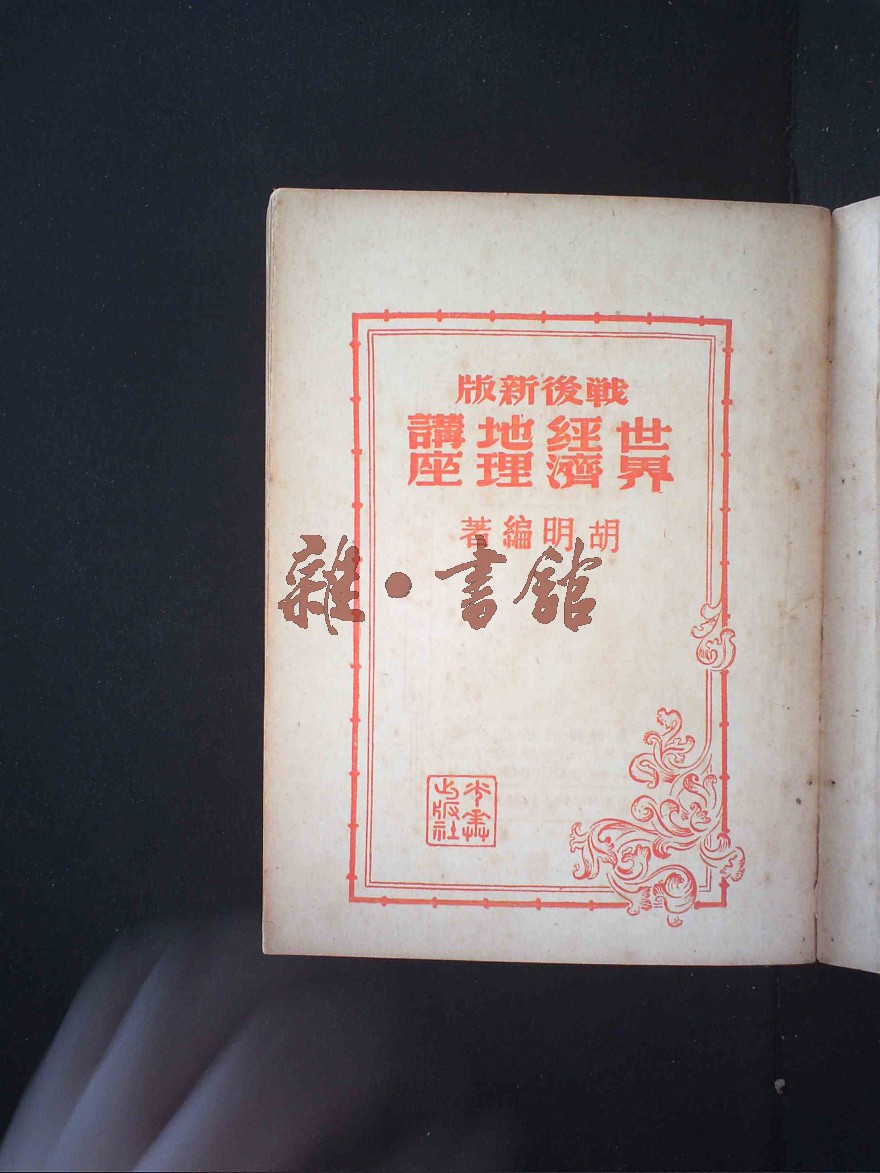 戦後新版
世界經濟地理講座
胡明編著
雜·書館
光華出版社